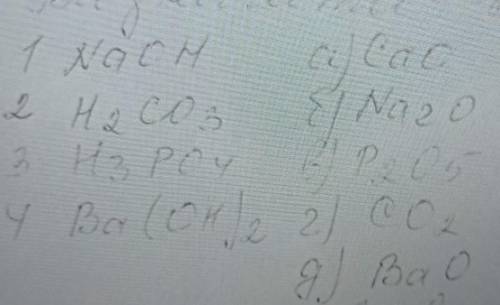 1 NaOH а) CaO
2 H2CO3 б) Na2O
3 H3PO4 в) P2O5
4 Ba(OH)2 г) CO2
д) BaO